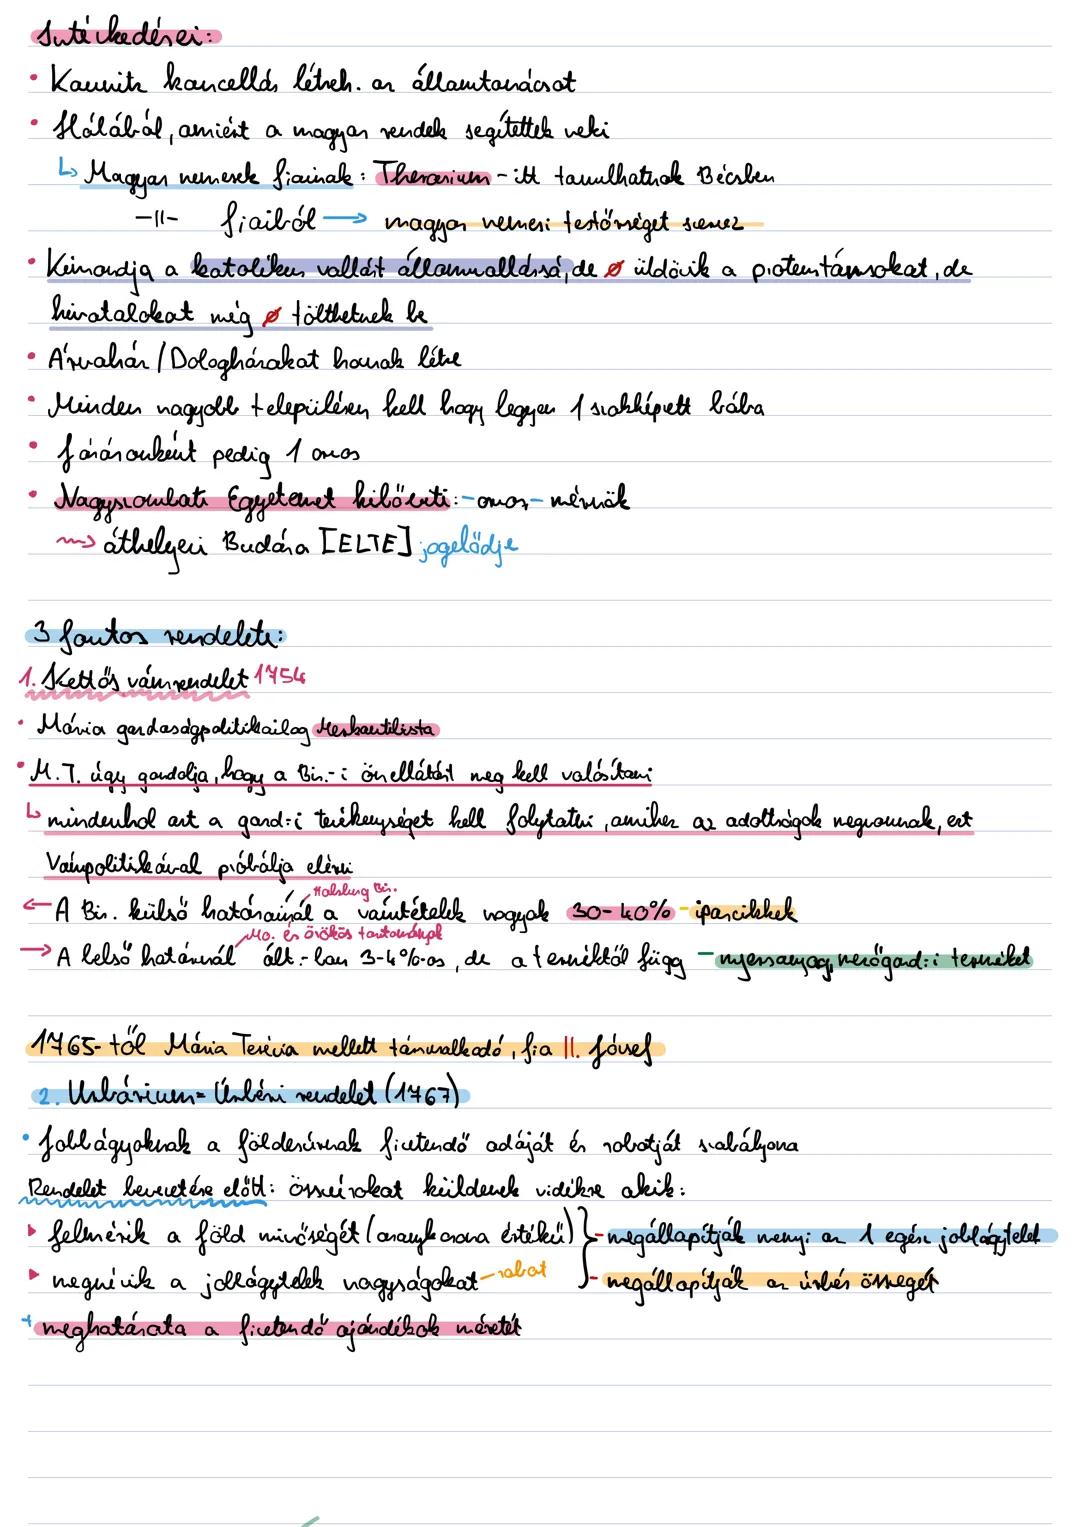 Intézkedései:
• Kaunitz kancellár létreh. az államtanácsot
• Hálából, amiért a magyar rendek segítettek neki
↳ Magyar nemesek fiainak: Therezium - itt tanulhatnak Bécsben
-||- fiaiból → magyar nemesi testőrséget szervez
• Kimondja a katolikus vallást államvallássá, de ø üldözik a protestánsokat, de
hivatalokat még ø tölthetnek be
• Árvaház / Dologházakat hoznak létre
• Minden nagyobb településen kell hogy legyen 1 szakképzett bába
• Járásonként pedig 1 orvos
• Nagyszombati Egyetemet kibővíti: - orvos, - mérnök
⇝ áthelyezi Budára [ELTE] jogelődje
3 fontos rendelete:
1. Kettős vámrendelet 1754
• Mária gazdaságpolitikailag Merkantilista
• M.T. úgy gondolja, hogy a Bir.-i önellátást meg kell valósítani
↳ mindenhol azt a gazd-i tevékenységet kell folytatni, amihez az adottságok megvannak, ezt
Vámpolitikával próbálja elérni
Habsburg Bir.
← A Bir. külső határainál a vámtételek nagyok 30-40% - iparcikkek
Mo. és örökös tartományok
→ A belső határnál ált.-ban 3-4%-os, de a terméktől függ - nyersanyag, mezőgazd-i terméket
1765-től Mária Terézia mellett társuralkodó, fia II. József
2. Urbárium = Úrbéri rendelet (1767)
• Jobbágyoknak a földesúrnak fizetendő adáját és robotját szabályozza
Rendelet bevezetése előtt: összeírókat küldenek vidékre akik:
▸ felmérik a föld minőségét (aranykorona értékű) } - megállapítják mennyi az 1 egész jobbágytelek
▸ megnézik a jobbágytelek nagyságokat - robot - megállapítják az úrbér összegét
+ meghatározta a fizetendő ajándékok méretét